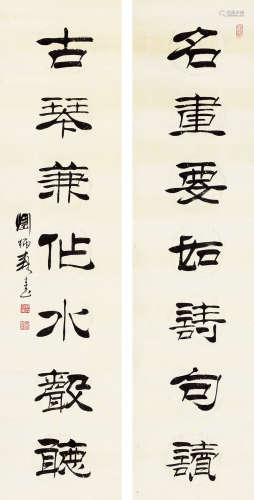 名畫要如詩句讀
古琴兼作水聲聽
劉炳森書